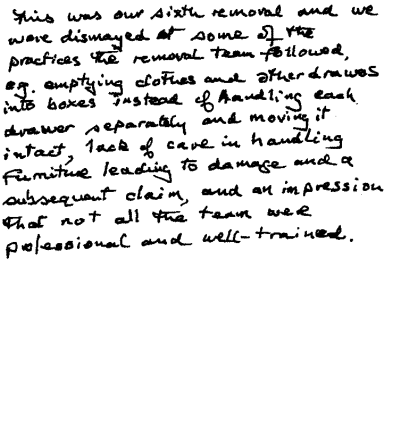 This was our sixth removal and we
were dismayed at some of the
practices the removal team followed,
e.g. emptying clothes and other drawes
into boxes instead of handling each
drawer separately and moving it
intact, lack of care in handling
furniture leading to damage and a
subsequent claim, and an impression
that not all the team were
professional and well-trained.